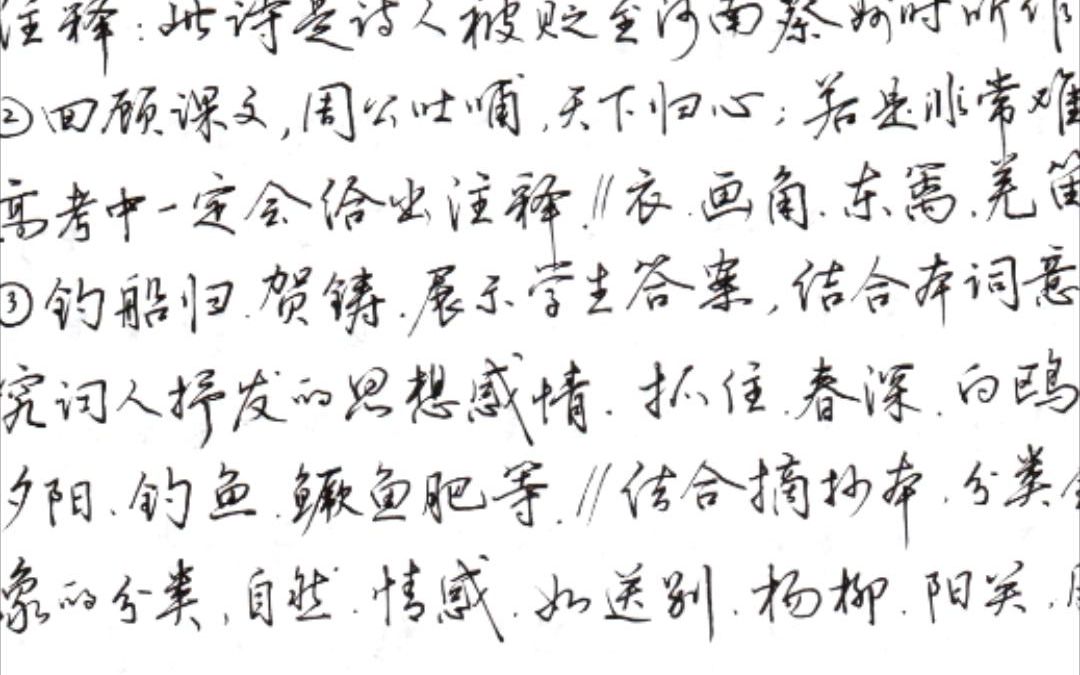 注释:此诗是诗人被贬至河南蔡州时所作
②回顾课文,周公吐哺,天下归心;若是非常难
高考中一定会给出注释.//衣.画角.东篱.羌笛
③钓船归.贺铸.展示学生答案,结合本词意
究词人抒发的思想感情.抓住.春深.白鸥
夕阳.钓鱼.鳜鱼肥等.//结合摘抄本.分类
象的分类,自然.情感.如送别.杨柳.阳关.